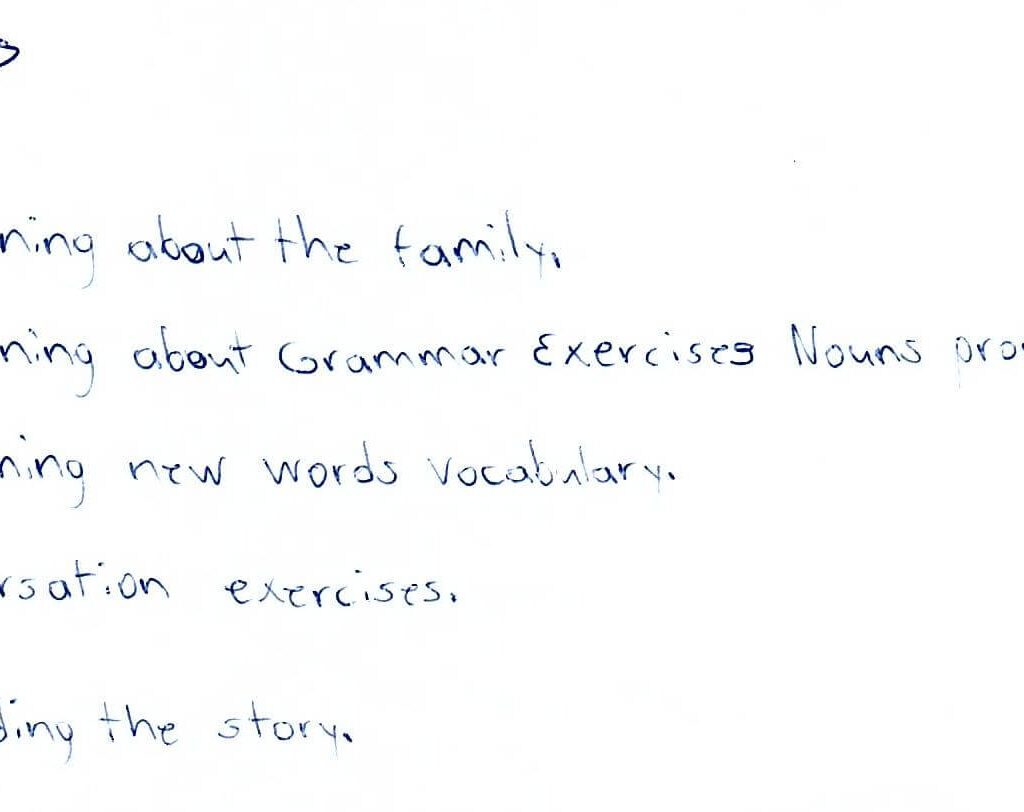 ning about the family.
ning about Grammar Exercises Nouns pro
ning new words vocabulary.
rsation exercises.
ding the story.